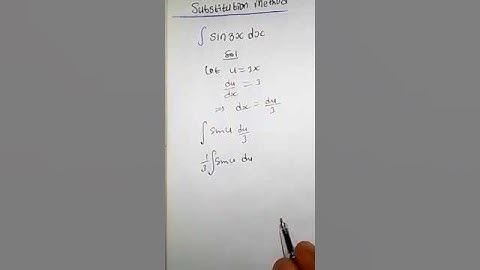 Substitution Method
∫ sin 3x dx
Sol
Let u = 3x
du/dx = 3
⇒ dx = du/3
∫ sin u du/3
1/3 ∫ sin u du